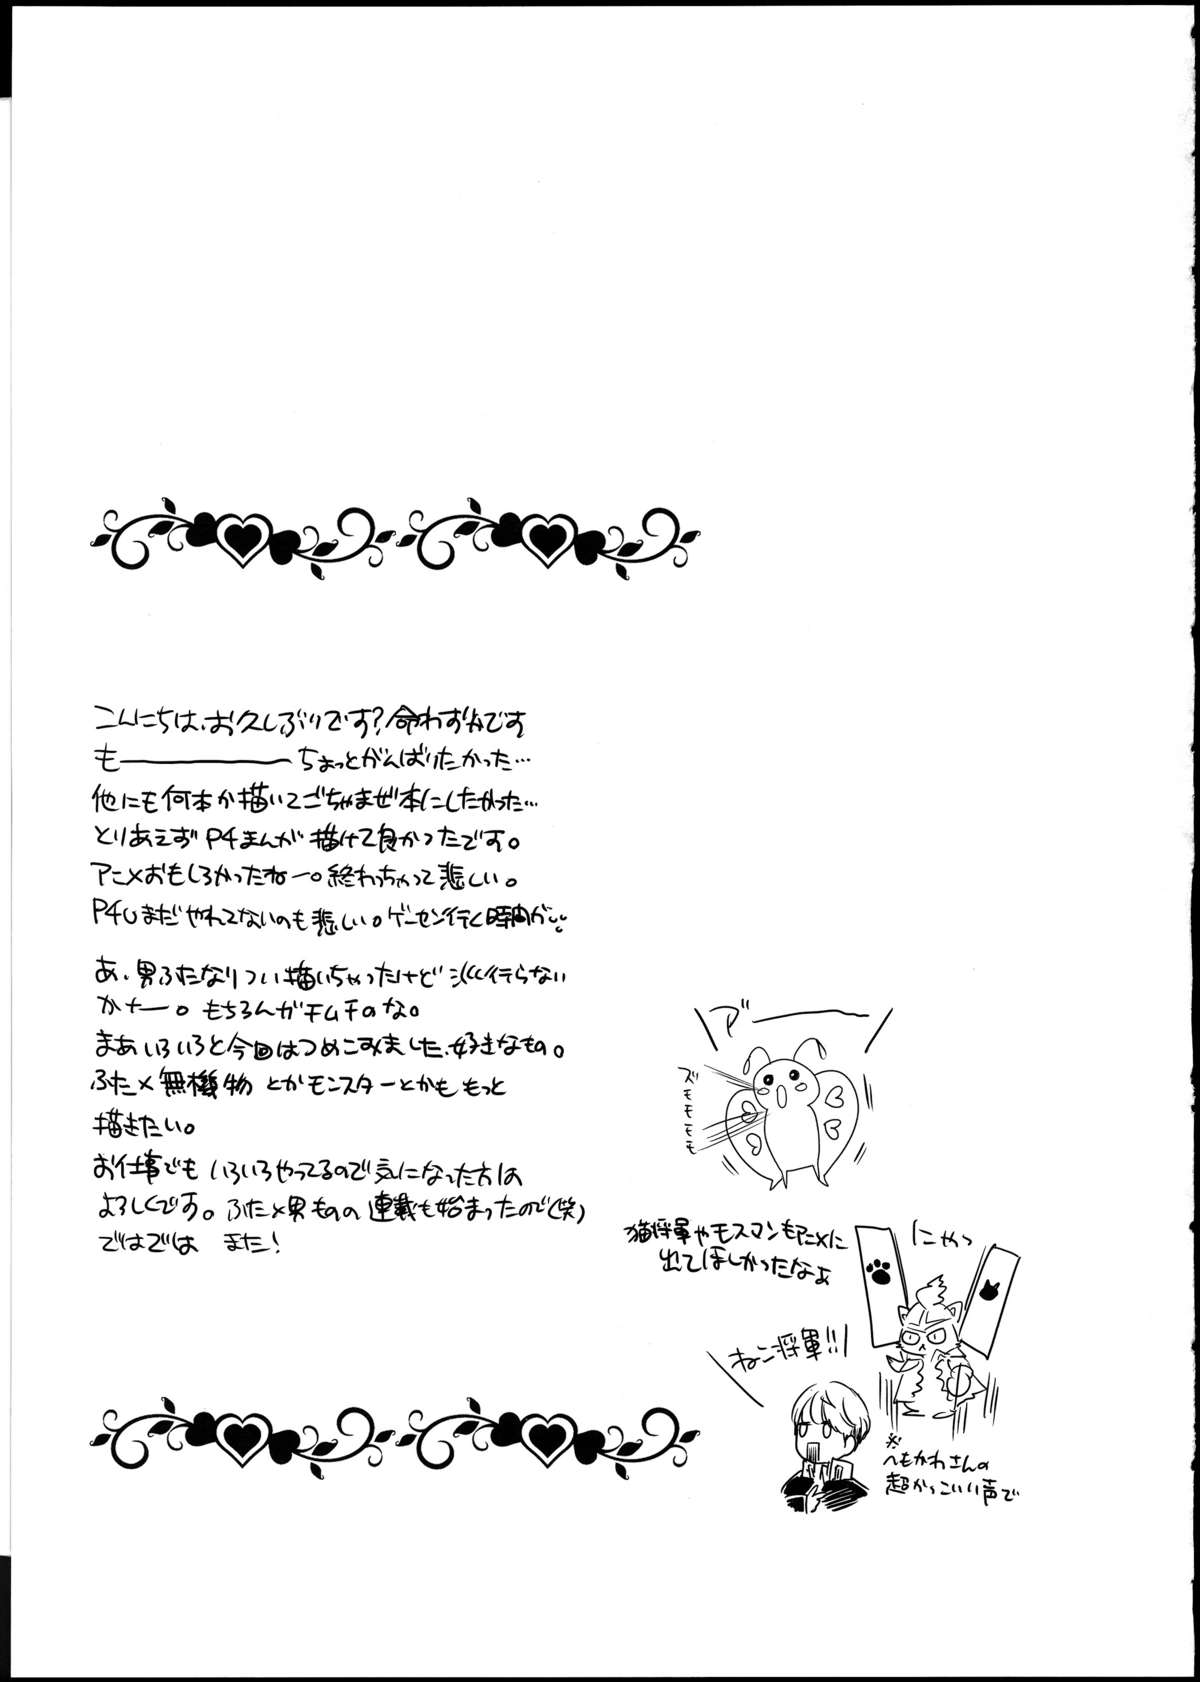 こんにちは、お久しぶりです?命わずかです
もーーーーーーちょっとがんばりたかった…
他にも何本か描いてごちゃまぜ本にしたかった…
とりあえずP4まんが描けて良かったです。
アニメおもしろかったねー。終わっちゃって悲しい。
P4Uまだやれてないのも悲しい。ゲーセン行く時間が
あ、男ふたなりつい描いちゃったけど 流行らない
かなー。もちろんガチムチのな。
まあいろいろと今回はつめこみました、好きなもの。
ふた×無機物 とかモンスターとかももっと
描きたい。
お仕事でも いろいろやってるので気になった方は
よろしくです。ふた×男ものの連載も始まったので(笑)
ではでは また!
ア゛ーーー
ズモモモモ
猫将軍やモスマンもアニメに
出てほしかったなぁ
にゃっ
ねこ将軍!!
※
へもかわさんの
超かっこいい声で